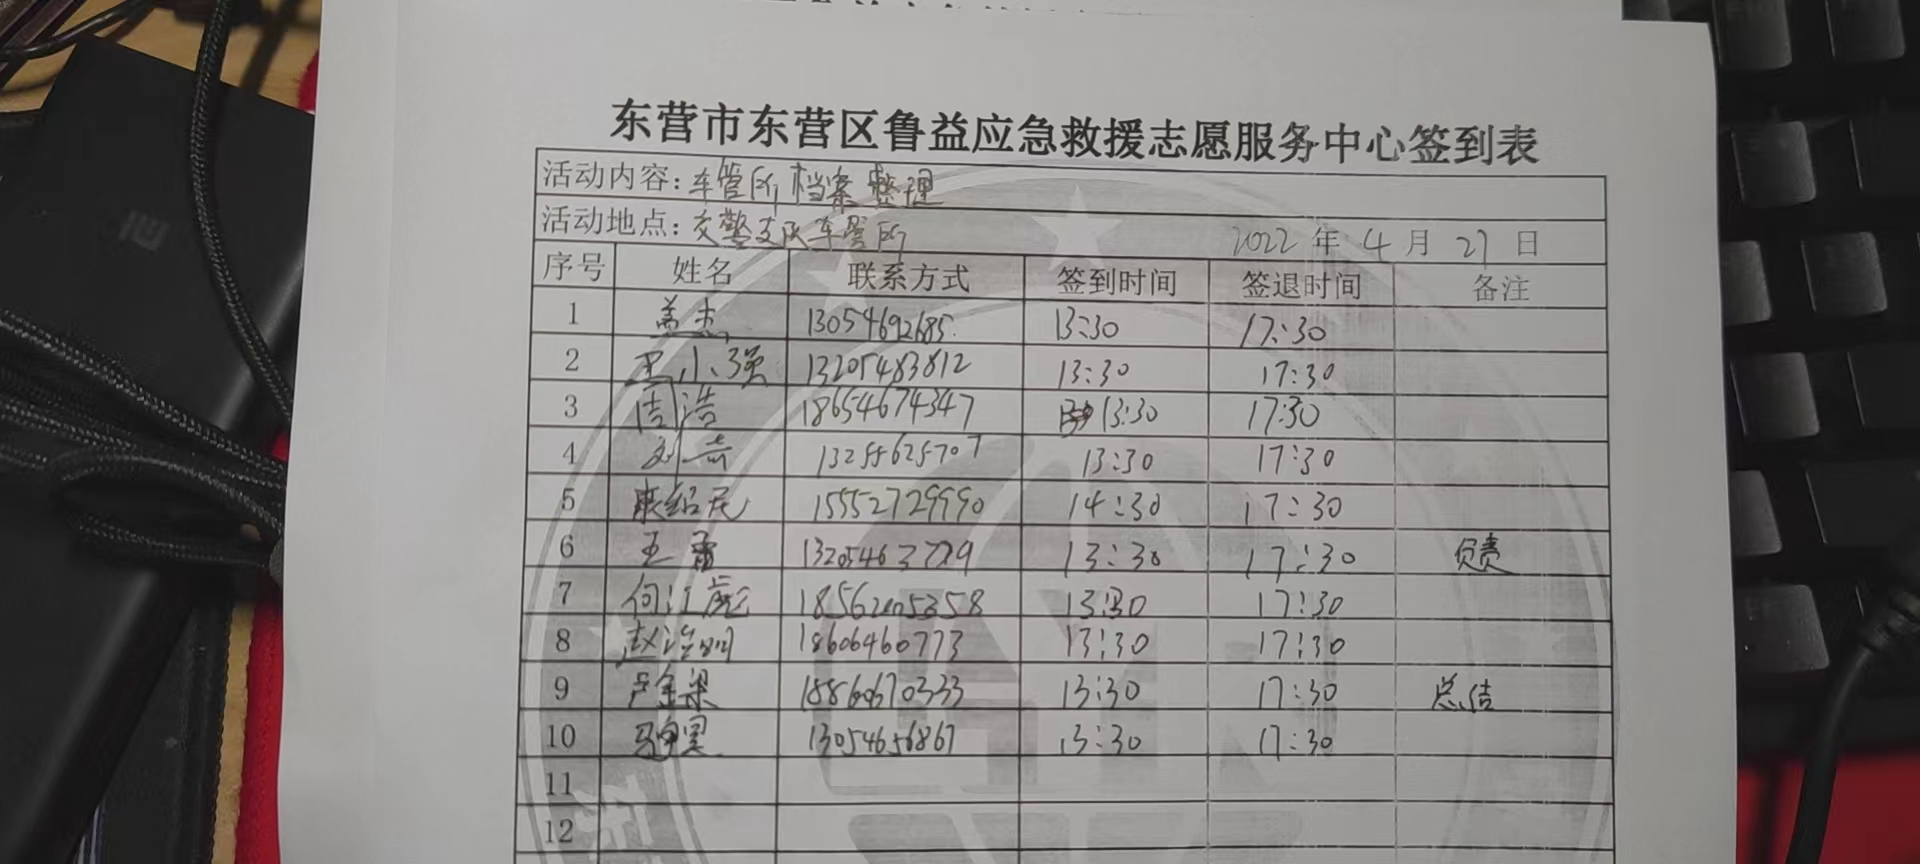 东营市东营区鲁益应急救援志愿服务中心签到表
活动内容：车管所档案整理
活动地点：交警支队车管所 2022年4月27日
序号 姓名 联系方式 签到时间 签退时间 备注
1 盖杰 13054692685 13:30 17:30
2 王小强 13205483812 13:30 17:30
3 周浩 18654674347 13:30 17:30
4 刘 13255625707 13:30 17:30
5 15552729990 14:30 17:30
6 王雷 13:30 17:30 负责
7 何江彪 13:30 17:30
8 赵治明 18606460773 13:30 17:30
9 卢金梁 18860670333 13:30 17:30 总结
10 13054656867 13:30 17:30
11
12